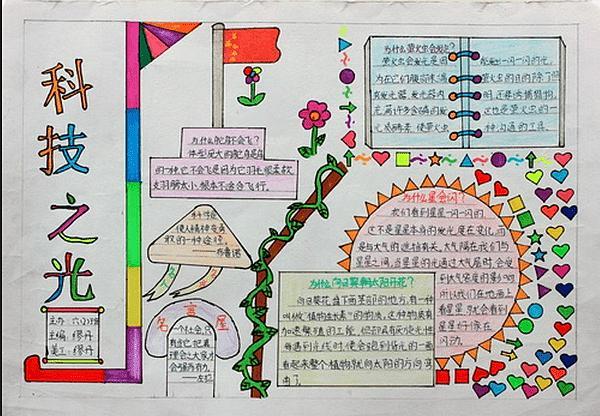 科技之光
主办:六(2)班
主编:缪丹
美工:缪丹
为什么鸵鸟不会飞?
体型庞大的鸵鸟是鸟
的一种,它不会飞是因为它羽毛很柔软
支羽膀太小,根本不适合飞行。
科学是
使人精神变勇
敢的一种途径。
——布鲁诺
名言屋
一个社会,只
有当它把真
理会之大家,才
会强而有力。
——左拉
为什么萤火虫会发光?
萤火虫发光是因
为在它们腹部末端
有发光器,发光器内
充满许多含磷的发
光质酵素,使萤火虫
能发出一闪一闪的光。
萤火虫的目的除了照
明,还要诱捕猎物,
这也是萤火虫的一
种沟通的工具。
为什么星会闪?
我们看到星一闪一闪的,
这不是星本身的发光度在变化,而
是与大气的遮挡有关。大气隔在我们与
星星之间,当星星的光通过大气层时,会受
到大气密度的影响
所以我们在地面上
看星星,就会看到
星星好像在
闪动。
为什么向日葵朝太阳开花?
向日葵花盘下面茎部的地方,有一种
叫做“植物生长素”的物质。这种物质有
加速繁殖的工能,但却具有厌光性,
每遇到光线时,便会跑到背光的一面
看起来整个植物就向太阳的方向弯
曲了。